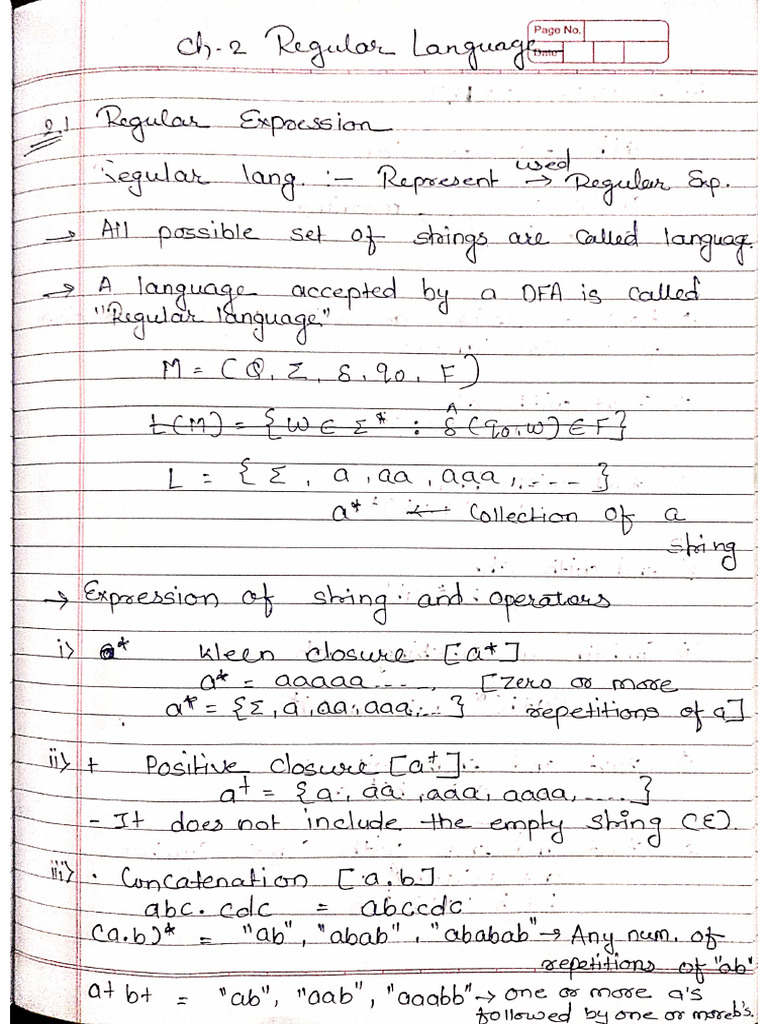 Ch.2 Regular Language
Page No.
Date
2.1 Regular Expression
Regular lang. :- Represent used → Regular Exp.
→ All possible set of strings are called languag.
→ A language accepted by a DFA is called
"Regular language"
M = (Q, Σ, δ, q0, F)
L(M) = {w ∈ Σ* : δ̂(q0,w) ∈ F}
L = {Σ, a, aa, aaa, ....}
a* ← Collection of a
string
→ Expression of string and operators
i) * Kleen closure [a*]
a* = aaaaa.... [Zero or more
a* = {Σ, a, aa, aaa, ..} repetitions of a]
ii) + Positive closure [a+]
a+ = {a, aa, aaa, aaaa, .....}
- It does not include the empty string (ε).
iii) . Concatenation [a.b]
abc.cdc = abccdc
(a.b)* = "ab", "abab", "ababab" → Any num. of
repetitions of "ab"
a+ b+ = "ab", "aab", "aaabb" → one or more a's
followed by one or more b's.